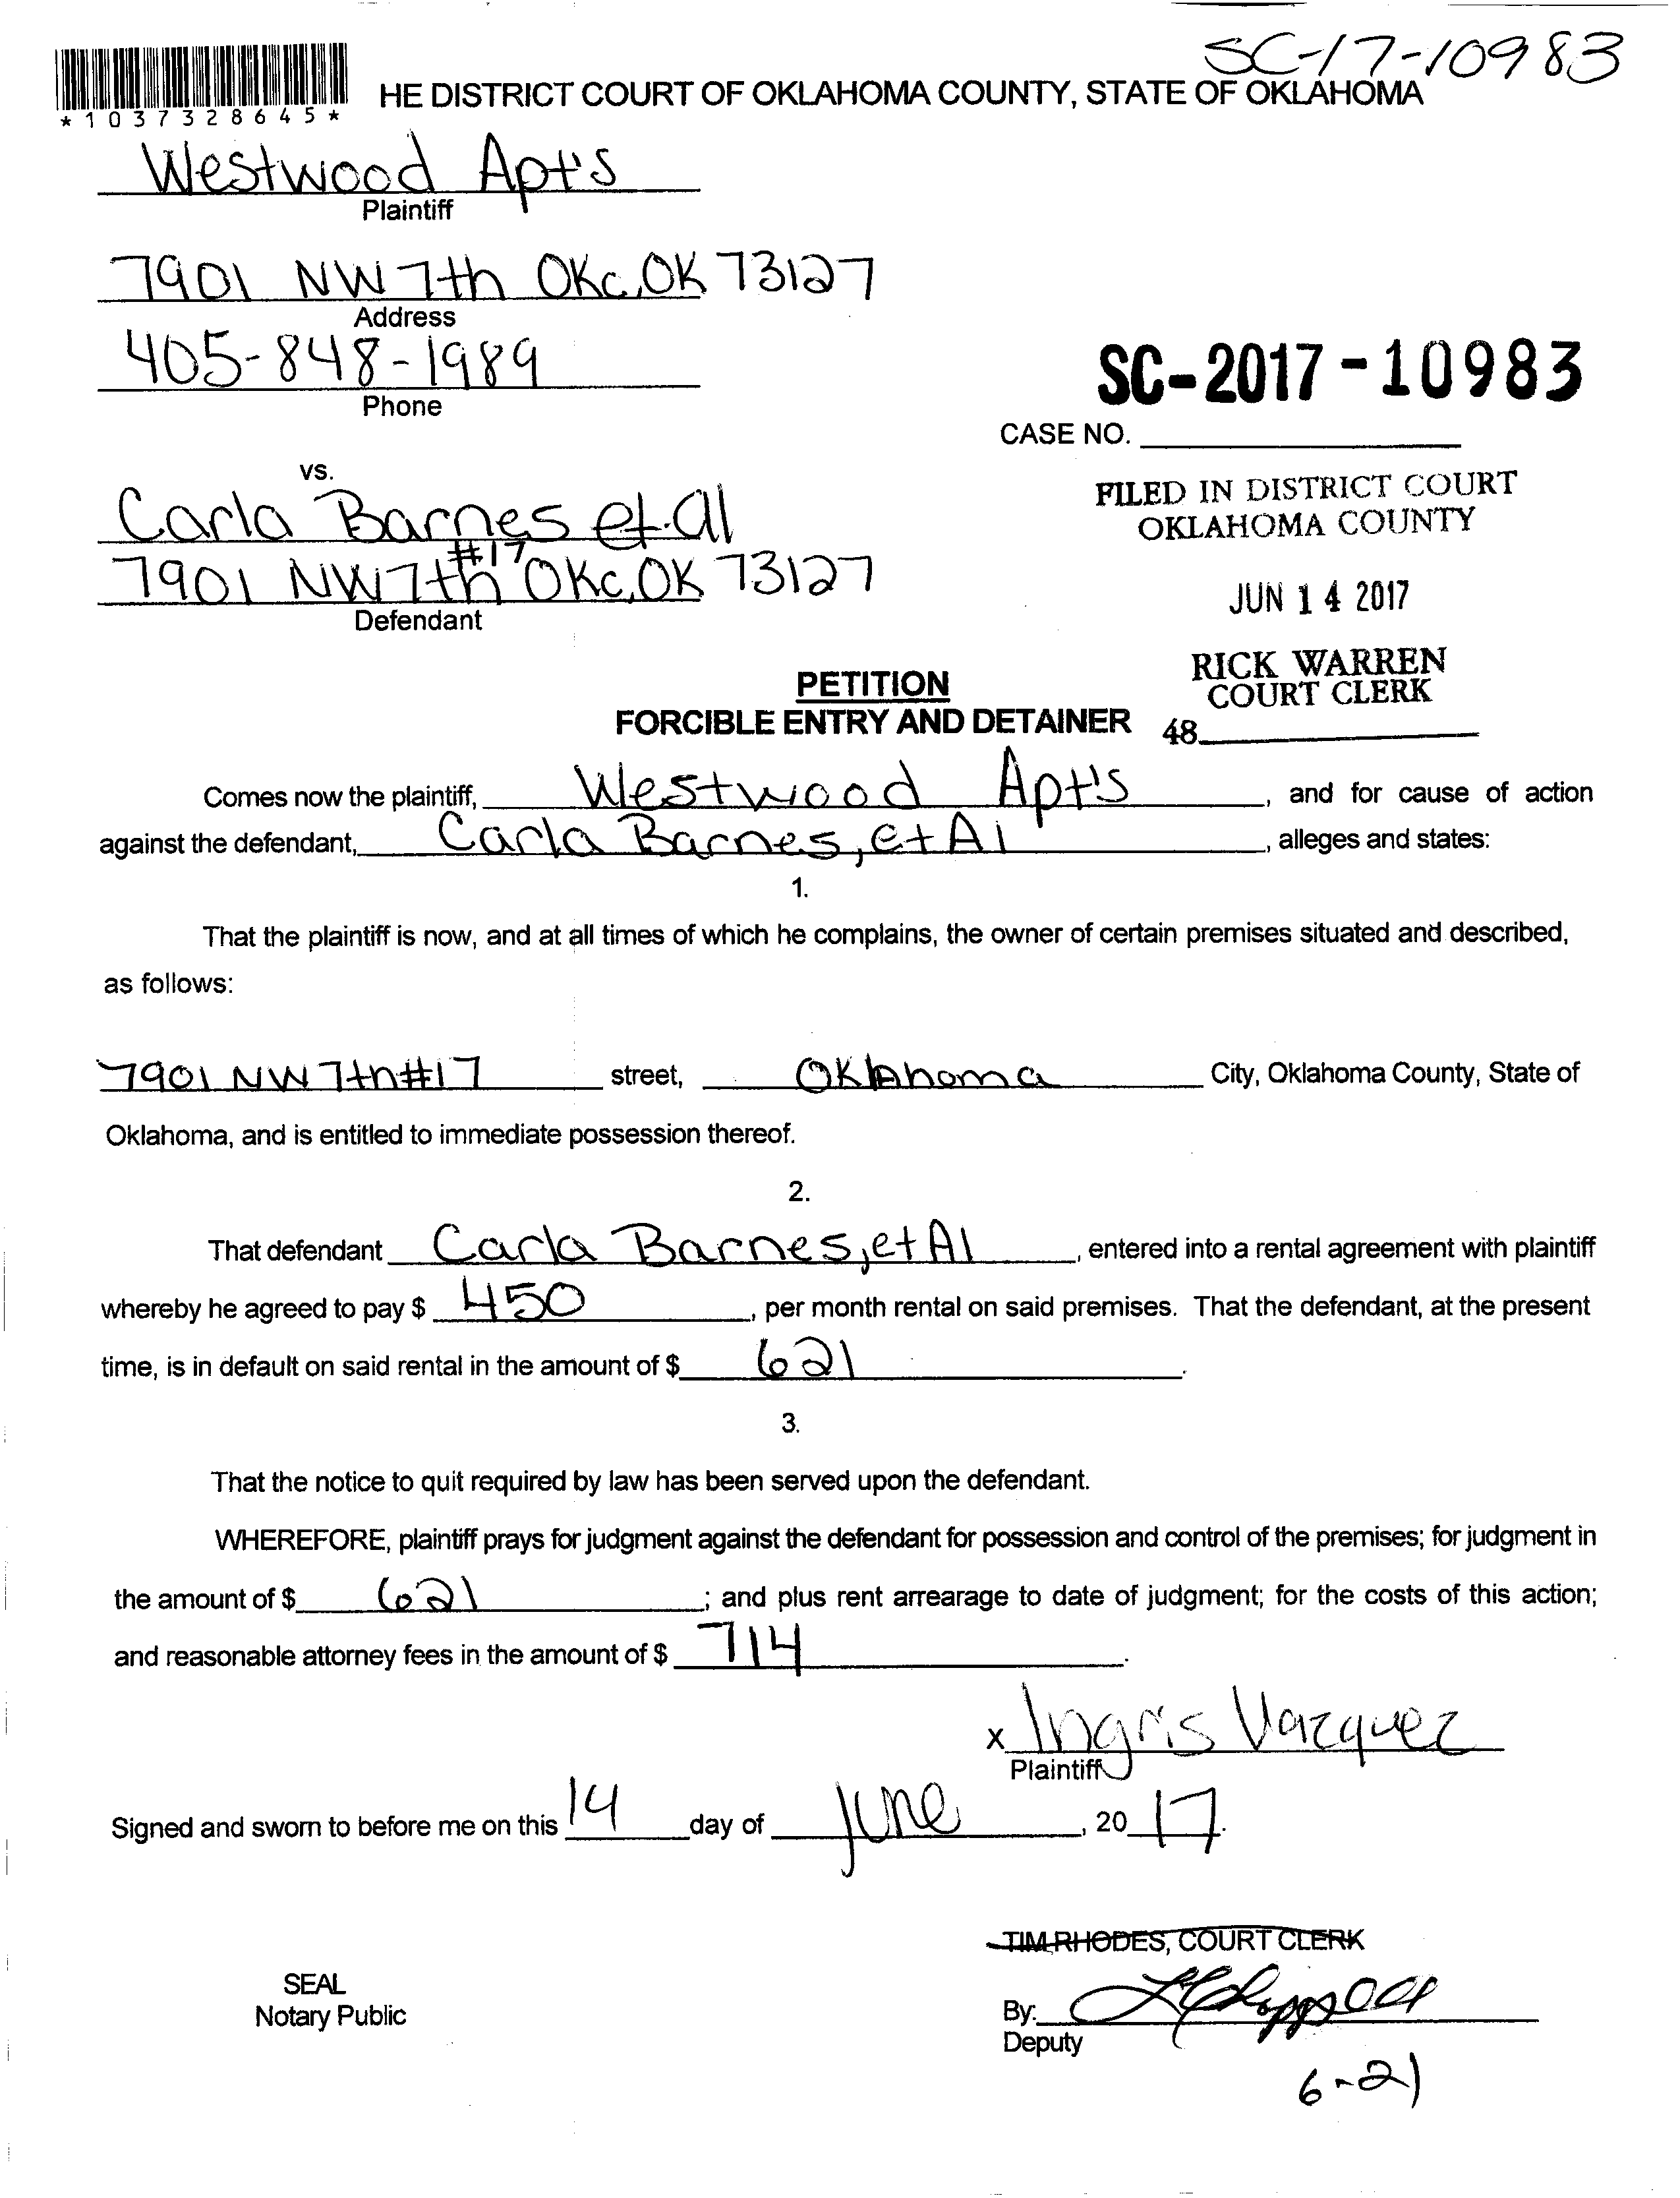 SC-17-10983
*1037328645*
HE DISTRICT COURT OF OKLAHOMA COUNTY, STATE OF OKLAHOMA
Westwood Apt's
Plaintiff
7901 NW 7th OKc, OK 73127
Address
405-848-1989
Phone
SC-2017-10983
CASE NO.
vs.
Carla Barnes et.al
#17
7901 NW 7th OKc, OK 73127
Defendant
FILED IN DISTRICT COURT
OKLAHOMA COUNTY
JUN 14 2017
RICK WARREN
COURT CLERK
48
PETITION
FORCIBLE ENTRY AND DETAINER
Comes now the plaintiff, Westwood Apt's, and for cause of action
against the defendant, Carla Barnes, et Al, alleges and states:
1.
That the plaintiff is now, and at all times of which he complains, the owner of certain premises situated and described,
as follows:
7901 NW 7th #17 street, Oklahoma City, Oklahoma County, State of
Oklahoma, and is entitled to immediate possession thereof.
2.
That defendant Carla Barnes, et Al, entered into a rental agreement with plaintiff
whereby he agreed to pay $ 450, per month rental on said premises. That the defendant, at the present
time, is in default on said rental in the amount of $ 621.
3.
That the notice to quit required by law has been served upon the defendant.
WHEREFORE, plaintiff prays for judgment against the defendant for possession and control of the premises; for judgment in
the amount of $ 621; and plus rent arrearage to date of judgment; for the costs of this action;
and reasonable attorney fees in the amount of $ 714.
x Ingris Vazquez
Plaintiff
Signed and sworn to before me on this 14 day of June, 20 17.
TIM RHODES, COURT CLERK
SEAL
Notary Public
By:
Deputy
6-21